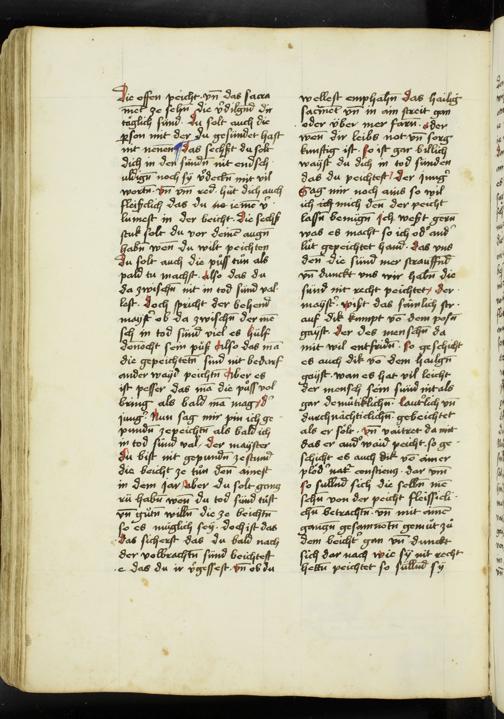 Die offen peicht · vn̄ das sacra
met ze sehn̄ die v̓dilgnd din
täglich sünd · Du solt auch die
p̲son mit der du gesündet hast
nit nenen das sechst du solt
dich in den sündn̄ nit endsch
uldign̄ noch sÿ v̓deckn̄ mit vil
wortn̄ · vn̄ vm̄ red · hüt dich auch
fleislich das du
lumest in der beicht · Die sechs
stuk solt du vor deine augn̄
habn̄ wen du wilt peichten
Du solt auch die püß tün als
pald du machst · Also das du
da zwischn̄ nit in tod sünd val
lest · Doch spricht der
mayst̓ ob da zwischn̄ der me
sch in tod sünd viel es hülf
dennocht sein püß Also das ma
die gepeichtetn̄ sünd nit bedarf
ander wayd peichtn̄ Aber es
ist pesser das ma die püß vol
bring als bald ma mag / D̓
jung̓ Nun sag mir pin ich ge
pundn̄ zepeichtn̄ als bald ich
in tod sünd val · Der mayster
Du bist nit gepundn̄ zestund
die beicht ze tün den ainest
in dem jar Aber du solt gang
rü habn̄ wen du tod sünd tüst
vn̄ gütn̄ willn̄ die ze beichtn̄
so es müglich seÿ · doch ist das
das sicherst das du bald nach
der volbrachtn̄ sünd beichtest
e das du ir v̓gessest · vn̄ ob du
wellest emphahn̄ das hailig
sacment vn̄ in ain streit gan
oder über mer farn̄ · oder
wen dir leibs not vn̄ sorg
künftig ist · so ist gar billich
wayst du dich in tod sünden
das du peichtest / der jung̓
Sag mir noch ains so wil
ich ich mich den der peicht
lassn̄ benügn̄ Ich west gern
was es macht so ich od̓ and̓
lüt gepeichtet hand · das vns
den die sünd mer
vn̄ dunckt vns wir habn̄ die
sünd nit recht peichtet / der
mayst̓ · wist das sämlich str
auf dik kumpt vō dem posn̄
gayst · der des menschn̄ da
mit wil · so geschicht
es auch dik vō dem hailgn̄
gayst · wan es hat vil leicht
der mensch sein sünd nit als
gar demütiklichn̄ · lautlich vn̄
durchnächticlichn̄ · gebeichtet
als er solt · vn̄ da mit
das er and̓ wayd peicht · so ge
schicht es auch dik vō ainer
plöd̓ nat̓ · dar vm̄
so süllnd sich die selbn̄ me
schn̄ von der peicht fleissicli
chn̄ betrachtn̄ · vn̄ mit aine
ganczn̄ gesamnotn̄ gemüt zü
dem beicht̓ gan vn̄ dunckt
sich dar nach wie sÿ nit recht
hettn̄ peichtet so süllnd sÿ